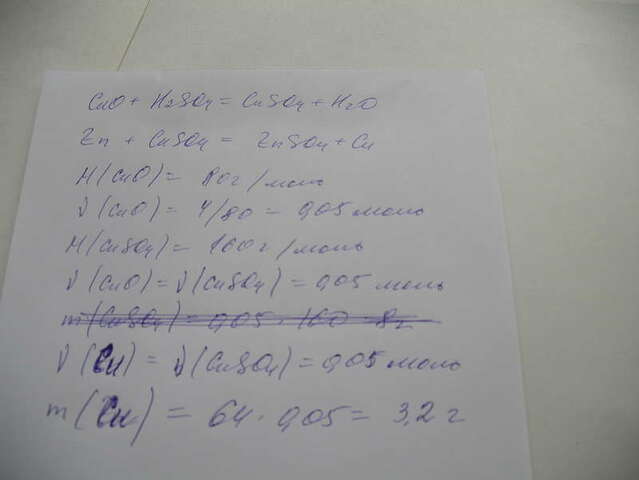 CuO + H2SO4 = CuSO4 + H2O
Zn + CuSO4 = ZnSO4 + Cu
M(CuO) = 80г/моль
ν(CuO) = 4/80 = 0,05 моль
M(CuSO4) = 160г/моль
ν(CuO) = ν(CuSO4) = 0,05 моль
m(CuSO4) = 0,05 · 160 = 8г
ν(Cu) = ν(CuSO4) = 0,05 моль
m(Cu) = 64 · 0,05 = 3,2 г